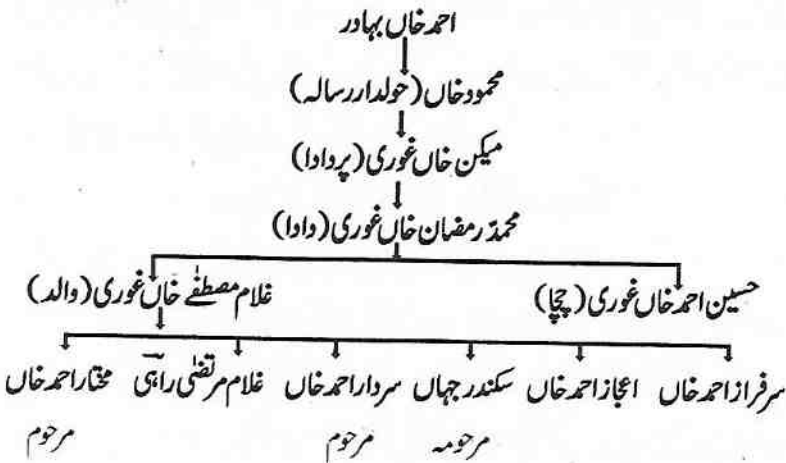 احمد خاں بہادر
محمود خاں (حولدار رسالہ)
میکن خاں غوری (پردادا)
محمدؐ رمضان خاں غوری (دادا)
حسین احمد خاں غوری (چچا) غلام مصطفےٰ خاں غوری (والد)
سرفراز احمد خاں اعجاز احمد خاں سکندر جہاں سردار احمد خاں غلام مرتضیٰ راہیؔ مختار احمد خاں
مرحومہ مرحوم مرحوم